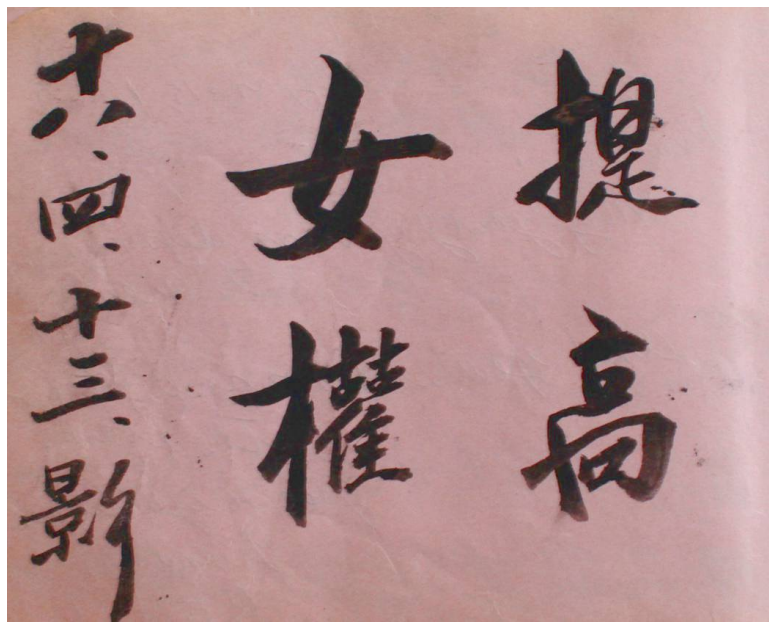 提高
女權
十八、四、十三、影